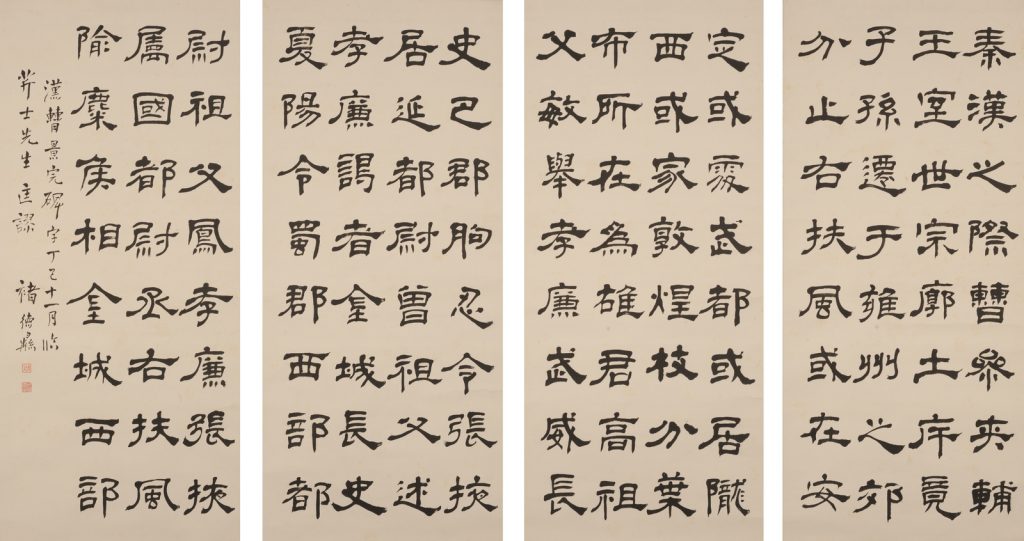 秦漢之際曹參夾輔
王室世宗廓土斥竟
子孫遷于雍州之郊
分止右扶風或在安
定或處武都或居隴
西或家敦煌枝分葉
布所在為雄君高祖
父敏舉孝廉武威長
史巴郡朐忍令張掖
居延都尉曾祖父述
孝廉謁者金城長史
夏陽令蜀郡西部都
尉祖父鳳孝廉張掖
属國都尉丞右扶風
隃麋侯相金城西部
漢曹景完碑字丁巳十一月臨
芹士先生匡謬 褚德彝